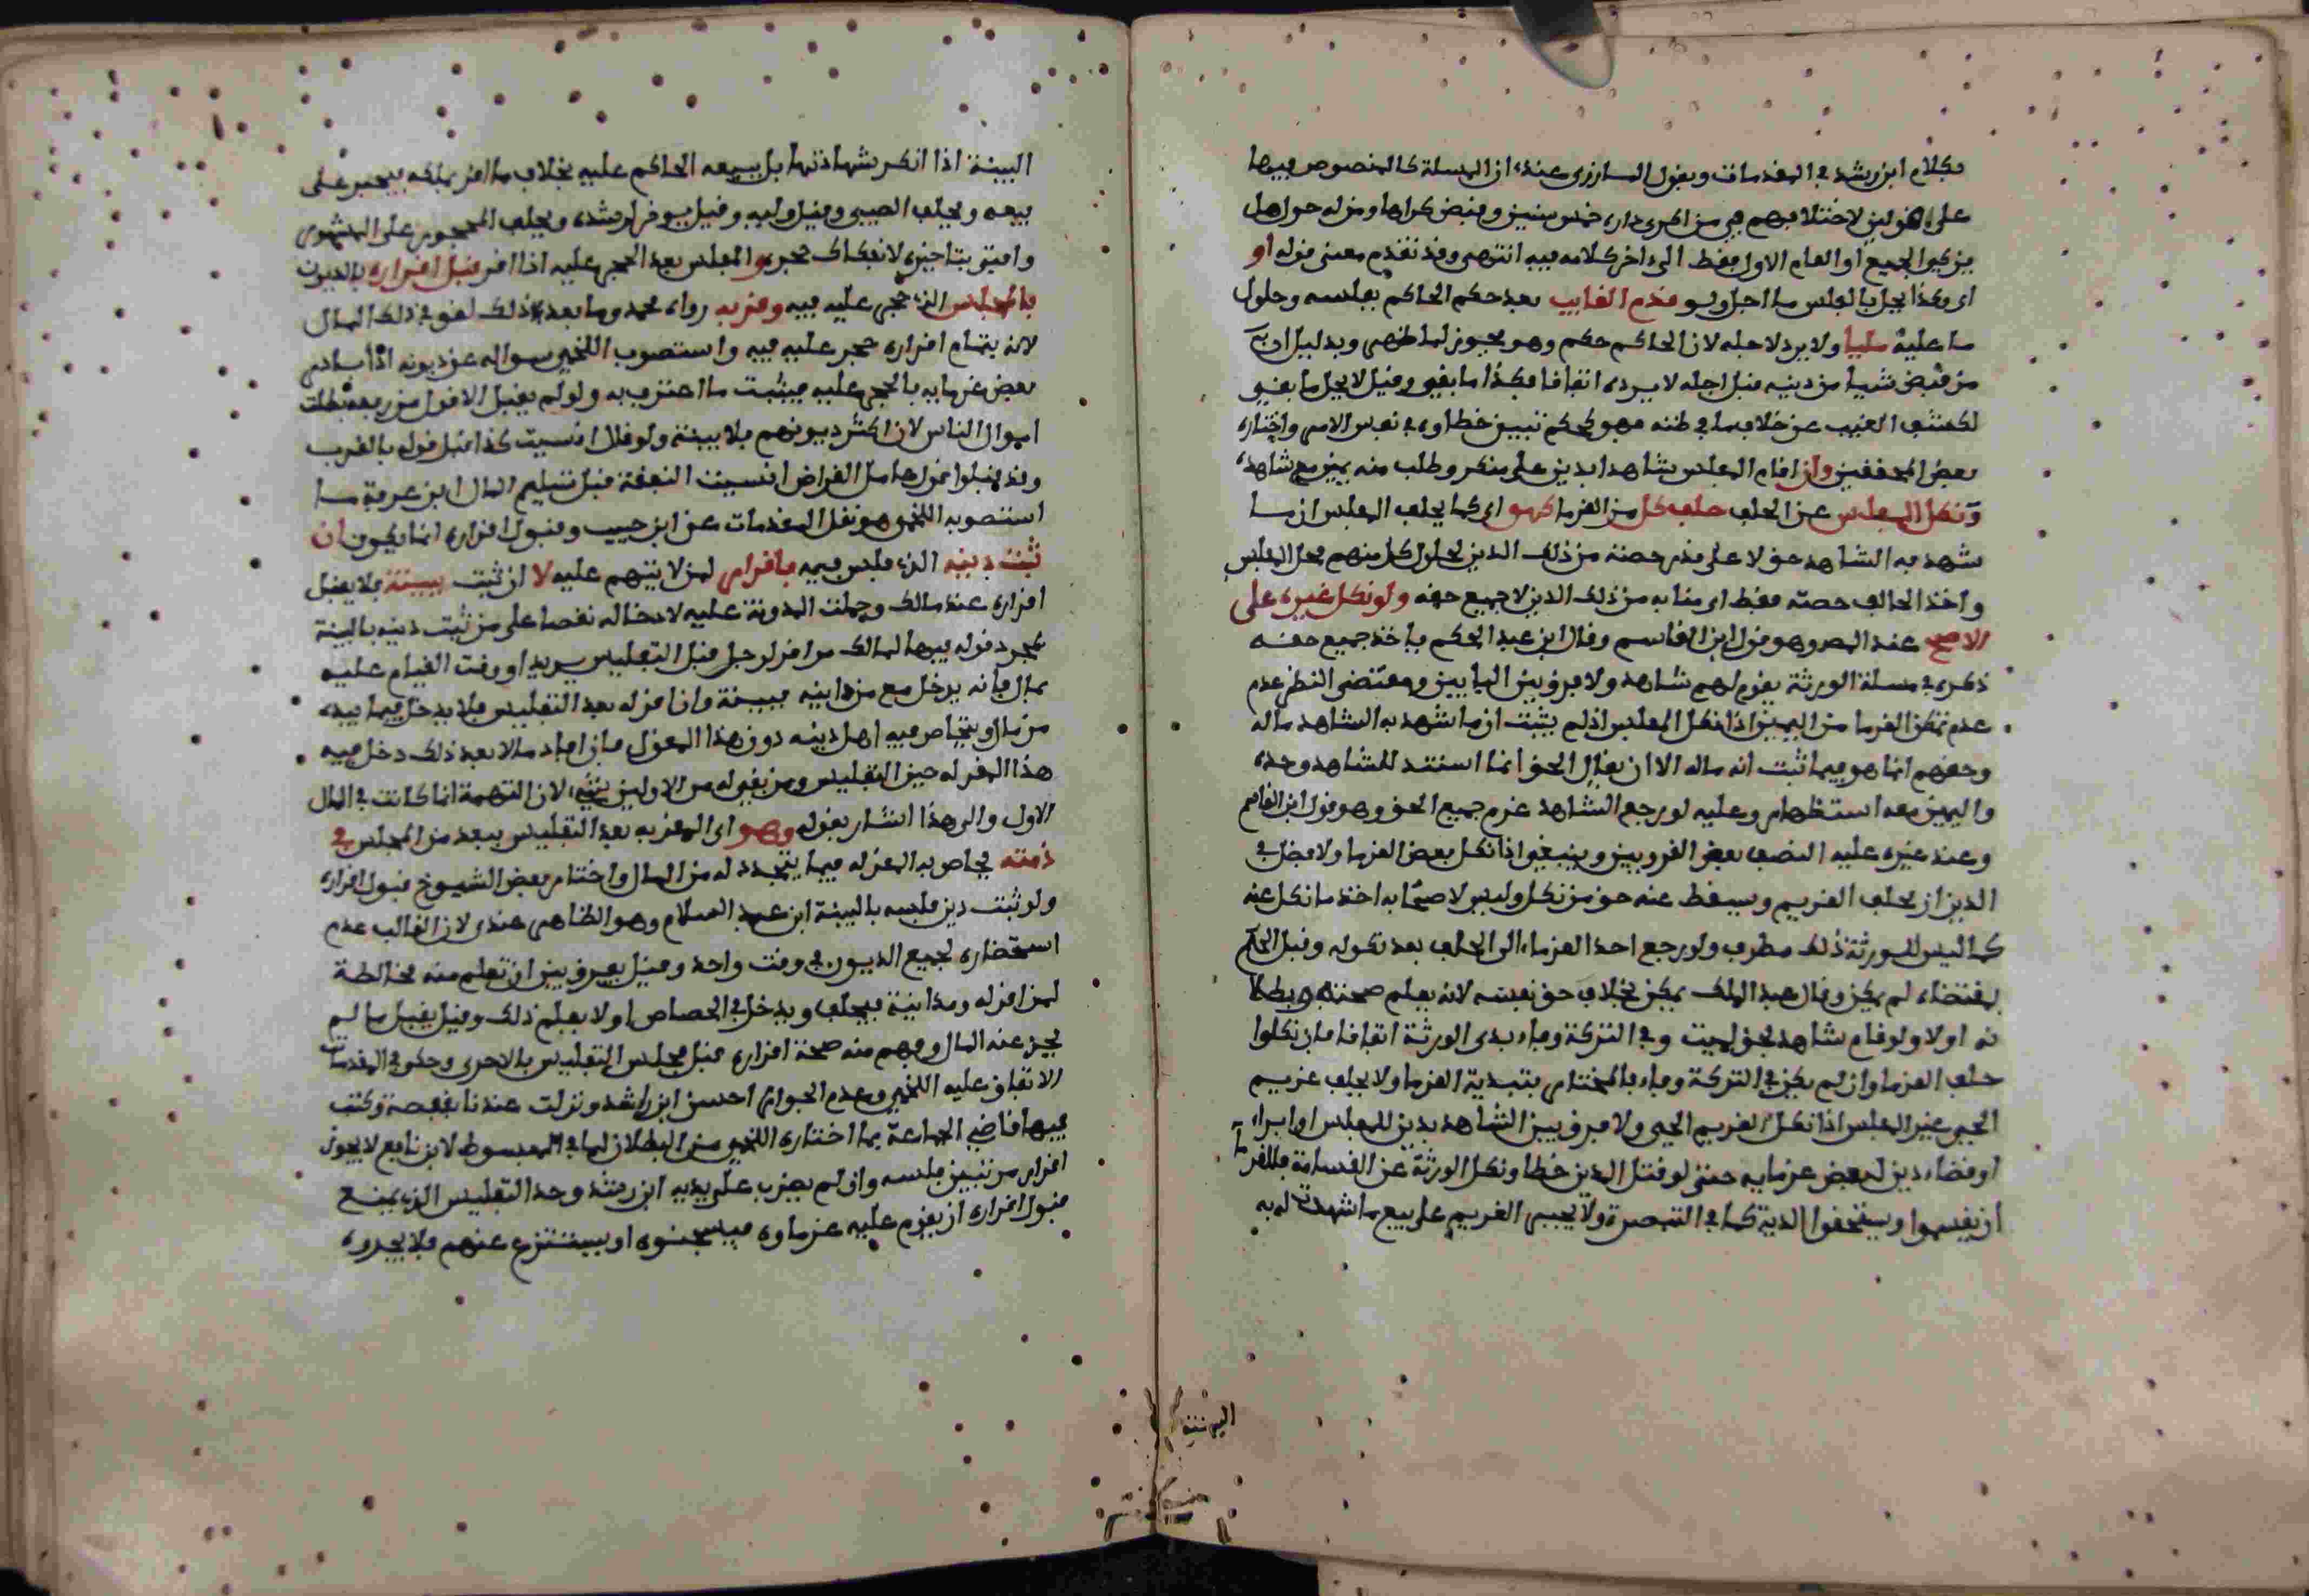 بكلام ابن رشد في المقدمات وبقول المازري عنده ان المسلة كالمنصوص فيها
على القولين لاختلافهم في من اكرى داره خمس سنين وقبض كراها ومر له حول هل
يزكي الجميع او العام الاول فقط الى اخر كلامه فيه انتهى وقد تقدم معنى قوله او
اي وكذا يحل بالفلس ما اجل ولو قدم الغايب بعد حكم الحاكم بفلسه وحلول
ما عليه مليا ولا يرد لاجله لان الحاكم حكم وهو مجوز لما ظهر وبدليل ان
من قبض شيا من دينه قبل اجله لا يرده اتفاقا فكذا ما بقي وقيل لا يحل ما بقي
لكشف الغيب عن خلاف ما في ظنه فهو كحكم تبين خطاوه في نفس الامر واختاره
بعض المحققين وان اقام المفلس شاهدا بدين على منكر وطلب منه يمين مع شاهده
ونكل المفلس عن الحلف حلف كل من الغرما كهو اي كما يحلف المفلس ان ما
شهد به الشاهد حق لا على قدر حصته من ذلك الدين لحلول كل منهم محل المفلس
واخذ الحالف حصته فقط اي منابه من ذلك الدين لا جميع حقه ولو نكل غيره على
الاصح عند المص وهو قول ابن القاسم وقال ابن عبد الحكم ياخذ جميع حقه
ذكره في مسلة الورثة يقوم لهم شاهد ولا فرق بين البابين ومقتضى النظر عدم
عدم تمكن الغرما من اليمين اذا نكل المفلس اذ لم يثبت ان ما شهد به الشاهد ماله
وحقهم انما هو فيما ثبت انه ماله الا ان يقال الحق انما استند للشاهد وحده
واليمين معه استظهار وعليه لو رجع الشاهد غرم جميع الحق وهو قول ابن القاسم
وعند غيره عليه النصف بعض القرويين وينبغي اذا نكل بعض الغرما ولا فضل في
الدين ان يحلف الغريم ويسقط عنه حق من نكل وليس لاصحابه اخذ ما نكل عنه
كما ليس للورثة ذلك مطرف ولو رجع احد الغرماء الى الحلف بعد نكوله وقبل الحكم
بمقتضاه لم يمكن وقال عبد الملك يمكن بخلاف حق نفسه لانه يعلم صحته وبطلا
نه اولا ولو قام شاهد بحق لميت وفي التركة وفاء بدي الورثة اتفاقا فان نكلوا
حلف الغرما وان لم يكن في التركة وفاء بالمختار بتبدية الغرما ولا يحلف غريم
الحي غير المفلس اذا نكل الغريم الحي ولا فرق بين الشاهد بدين للمفلس او ابراء
او قضاء دين لبعض غرمايه حتى لو قتل المدين خطا ونكل الورثة عن القسامة فللغرما
ان يقسموا ويستحقوا الدية كما في التبصرة ولا يجبر الغريم على بيع ما شهدت له به
البينة
البينة اذا انكر شهادتها بل يبيعه الحاكم عليه بخلاف ما اقر بملكه فيجبر على
بيعه ويحلف الصبي وقيل وليه وقيل يوقف لرشده ويحلف المحجور على المشهور
وافتي بتاخيره لانفكاك حجره والمفلس بعد الحجر عليه اذا اقر قبل اقراره بالديون
بالمجلس الذي حجر عليه فيه وقربه رواه محمد وما بعد ذلك لغو في ذلك المال
لانه بتمام اقراره حجر عليه فيه واستصوب اللخمي سواله عن ديونه اذا بادر
بعض غرمايه بالحجر عليه فيثبت ما اعترف به ولو لم يقبل الاقوال من ربعه بطلت
اموال الناس لان اكثر ديونهم بلا بينة ولو قال انسيت كذا قبل قوله بالقرب
وقد قبلوا قول عامل القراض انسيت النفقة قبل تسليم المال ابن عرفة ما
استصوبه اللخمي هو نقل المقدمات عن ابن حبيب وقبول اقراره انما يكون ان
ثبت دينه الذي فلس فيه باقرار لمن لا يتهم عليه لا ان ثبت ببينة فلا يقبل
اقراره عند مالك وحملت المدونة عليه لادخاله نقصا على من ثبت دينه بالبينة
بمجرد قوله فيها لمالك من اقر لرجل قبل التفليس يريد او وقت القيام عليه
بمال فانه يدخل مع من داينه ببينة وان اقر له بعد التفليس فلا يدخل فيما بيده
من مال ويتحاص فيه اهل دينه دون هذا المقر له فان افاد مالا بعد ذلك دخل فيه
هذا المقر له حين التفليس ومن بقي له من الاولين شي، لان التهمة انما كانت في المال
الاول والى هذا اشار بقوله وهو اي المقر به بعد التفليس ببعد من المجلس في
ذمته يحاص به المقر له فيما يتجدد له من المال واختار بعض الشيوخ قبول اقراره
ولو ثبت دين فلسه بالبينة ابن عبد السلام وهو الظاهر عندي لان الغالب عدم
استحضاره لجميع الديون في وقت واحد وقيل يفرق بين ان تعلم منه مخالطة
لمن اقر له ومداينة فيحلف ويدخل في الحصاص او لا يعلم ذلك وقيل يقبل ما لم
يحز عنه المال وفهم منه صحة اقراره قبل مجلس التفليس بالاحرى وحكى في المقدمات
الاتفاق عليه اللخمي وعدم الجواز احسن ابن راشد ونزلت عندنا بقفصة وكتب
فيها قاضي الجماعة بما اختاره اللخمي من البطلان لما في المبسوط لابن نافع لا يجوز
اقرار من تبين فلسه وان لم يضرب على يديه ابن رشد وحد التفليس الذي يمنع
قبول اقراره ان يقوم عليه غرماوه فيسجنوه او يستتر عنهم فلا يجدوه